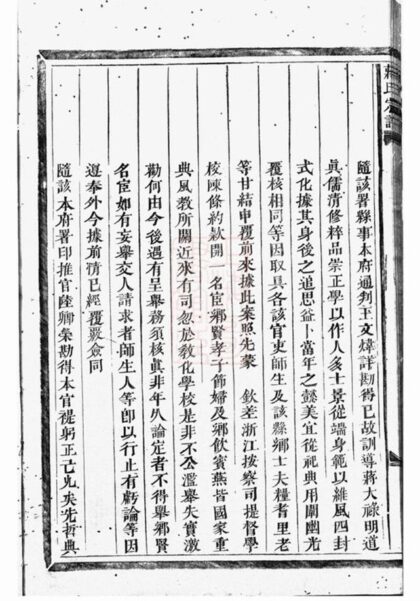 蔣氏宗譜
隨該署縣事本府通判王文煒詳勘得已故訓導蔣大祿明道
眞儒清修粹品崇正學以作人多士景從端身範以維風四封
式化據其身後之追思益卜當年之懿美宜從祀典用闡幽光
覆核相同等因取具各該官吏師生及該縣鄉士夫糧耆里老
等甘結申覆前來據此案照先蒙 欽差浙江按察司提督學
校陳條約款開 名宦鄉賢孝子節婦及鄉飮賓燕皆國家重
典風敎所關近來有司忽於敎化學校是非不公濫舉失實激
勸何由今後遇有呈舉務須核眞非年久論定者不得舉鄉賢
名宦如有妄舉交人請求者師生人等卽以行止有虧論等因
遵奉外今據前情已經覆覈僉同
隨該本府署印推官陸卿榮勘得本官禔躬正己允矣先哲典